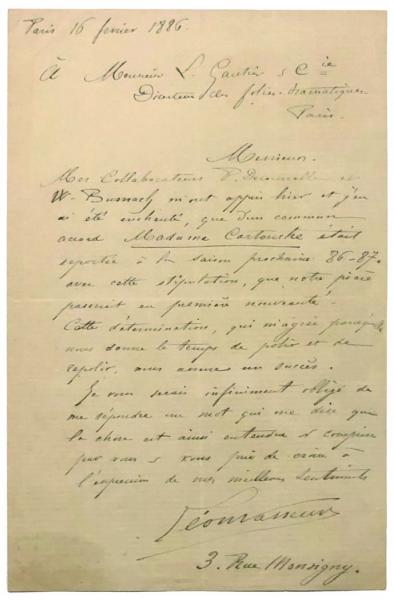 Paris 16 fevrier 1886.
À Messieurs L. Gautier & Cie
Directeur des folies-dramatiques
Paris.
Messieurs.
Mes Collaborateurs P. Decourcelle et
W. Busnach m'ont appris hier et j'en
ai été enchanté, que d'un commun
accord Madame Cartouche était
reportée à la saison prochaine 86-87.
avec cette stipulation, que notre pièce
passerait en première nouveauté.
Cette détermination, qui m'agrée parcequ'elle
nous donne le temps de polir et de
repolir, nous assure un succès.
Je vous serais infiniment obligé de
me repondre un mot qui me dise que
la chose est ainsi entendue & comprise
par vous & vous prie de croire à
l'expression de mes meilleurs sentiments
Léon Vasseur
3. Rue Monsigny.